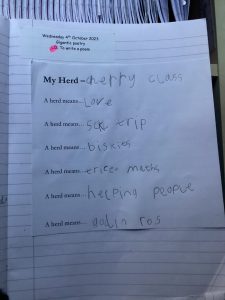 Wednesday 4th October 2023
Gigantic poetry
To write a poem
My Herd – cherry class
A herd means... Love
A herd means... trip
A herd means... biskies
A herd means... maths
A herd means... helping people
A herd means...